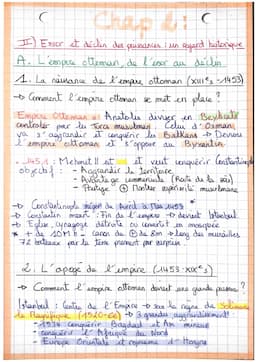 Chap 2:
II) Essor et déclin des puissances : un regard historique
A. L'empire ottoman, de l'essor au déclin
1. La naissance de l'empire ottoman (XIIIe s - 1453)
→ Comment l'empire ottoman se met en place ?
Empire Ottoman : Anatolie divisé en Beylicats
contrôlés par les Turcs musulmans. Celui d'Osman,
va s'agrandir et conquérir les Balkans → Devient
l'empire ottoman et s'oppose au Byzantin
1451 : Mehmet II et veut conquérir Constantinople
objectif : - Agrandir le territoire
- Avantage commerciale (Route de la soie)
- Prestige ⊕ Montrer supériorité musulmane
→ Constantinople Avril à Mai 1453
→ Constantin meurt. Fin de l'empire → devient Istanbul
→ Eglise, synagogue détruite ou converti en mosquée
→ + de 10M - canon de 8m → long des murailles
72 bateaux par la terre prennent par surprise.
2. L'apogé de l'empire (1453 - XIXe s)
→ Comment l'empire ottoman devient une grande puissance ?
Istanbul : Centre de l'Empire → sous le règne de Soliman
le Magnifique (1520-66) → grandes augmentent
- 1534 conquérir Bagdad et Asie mineure
- conquérir l'Afrique du Nord
- Europe Orientale et royaume d'Hongrie